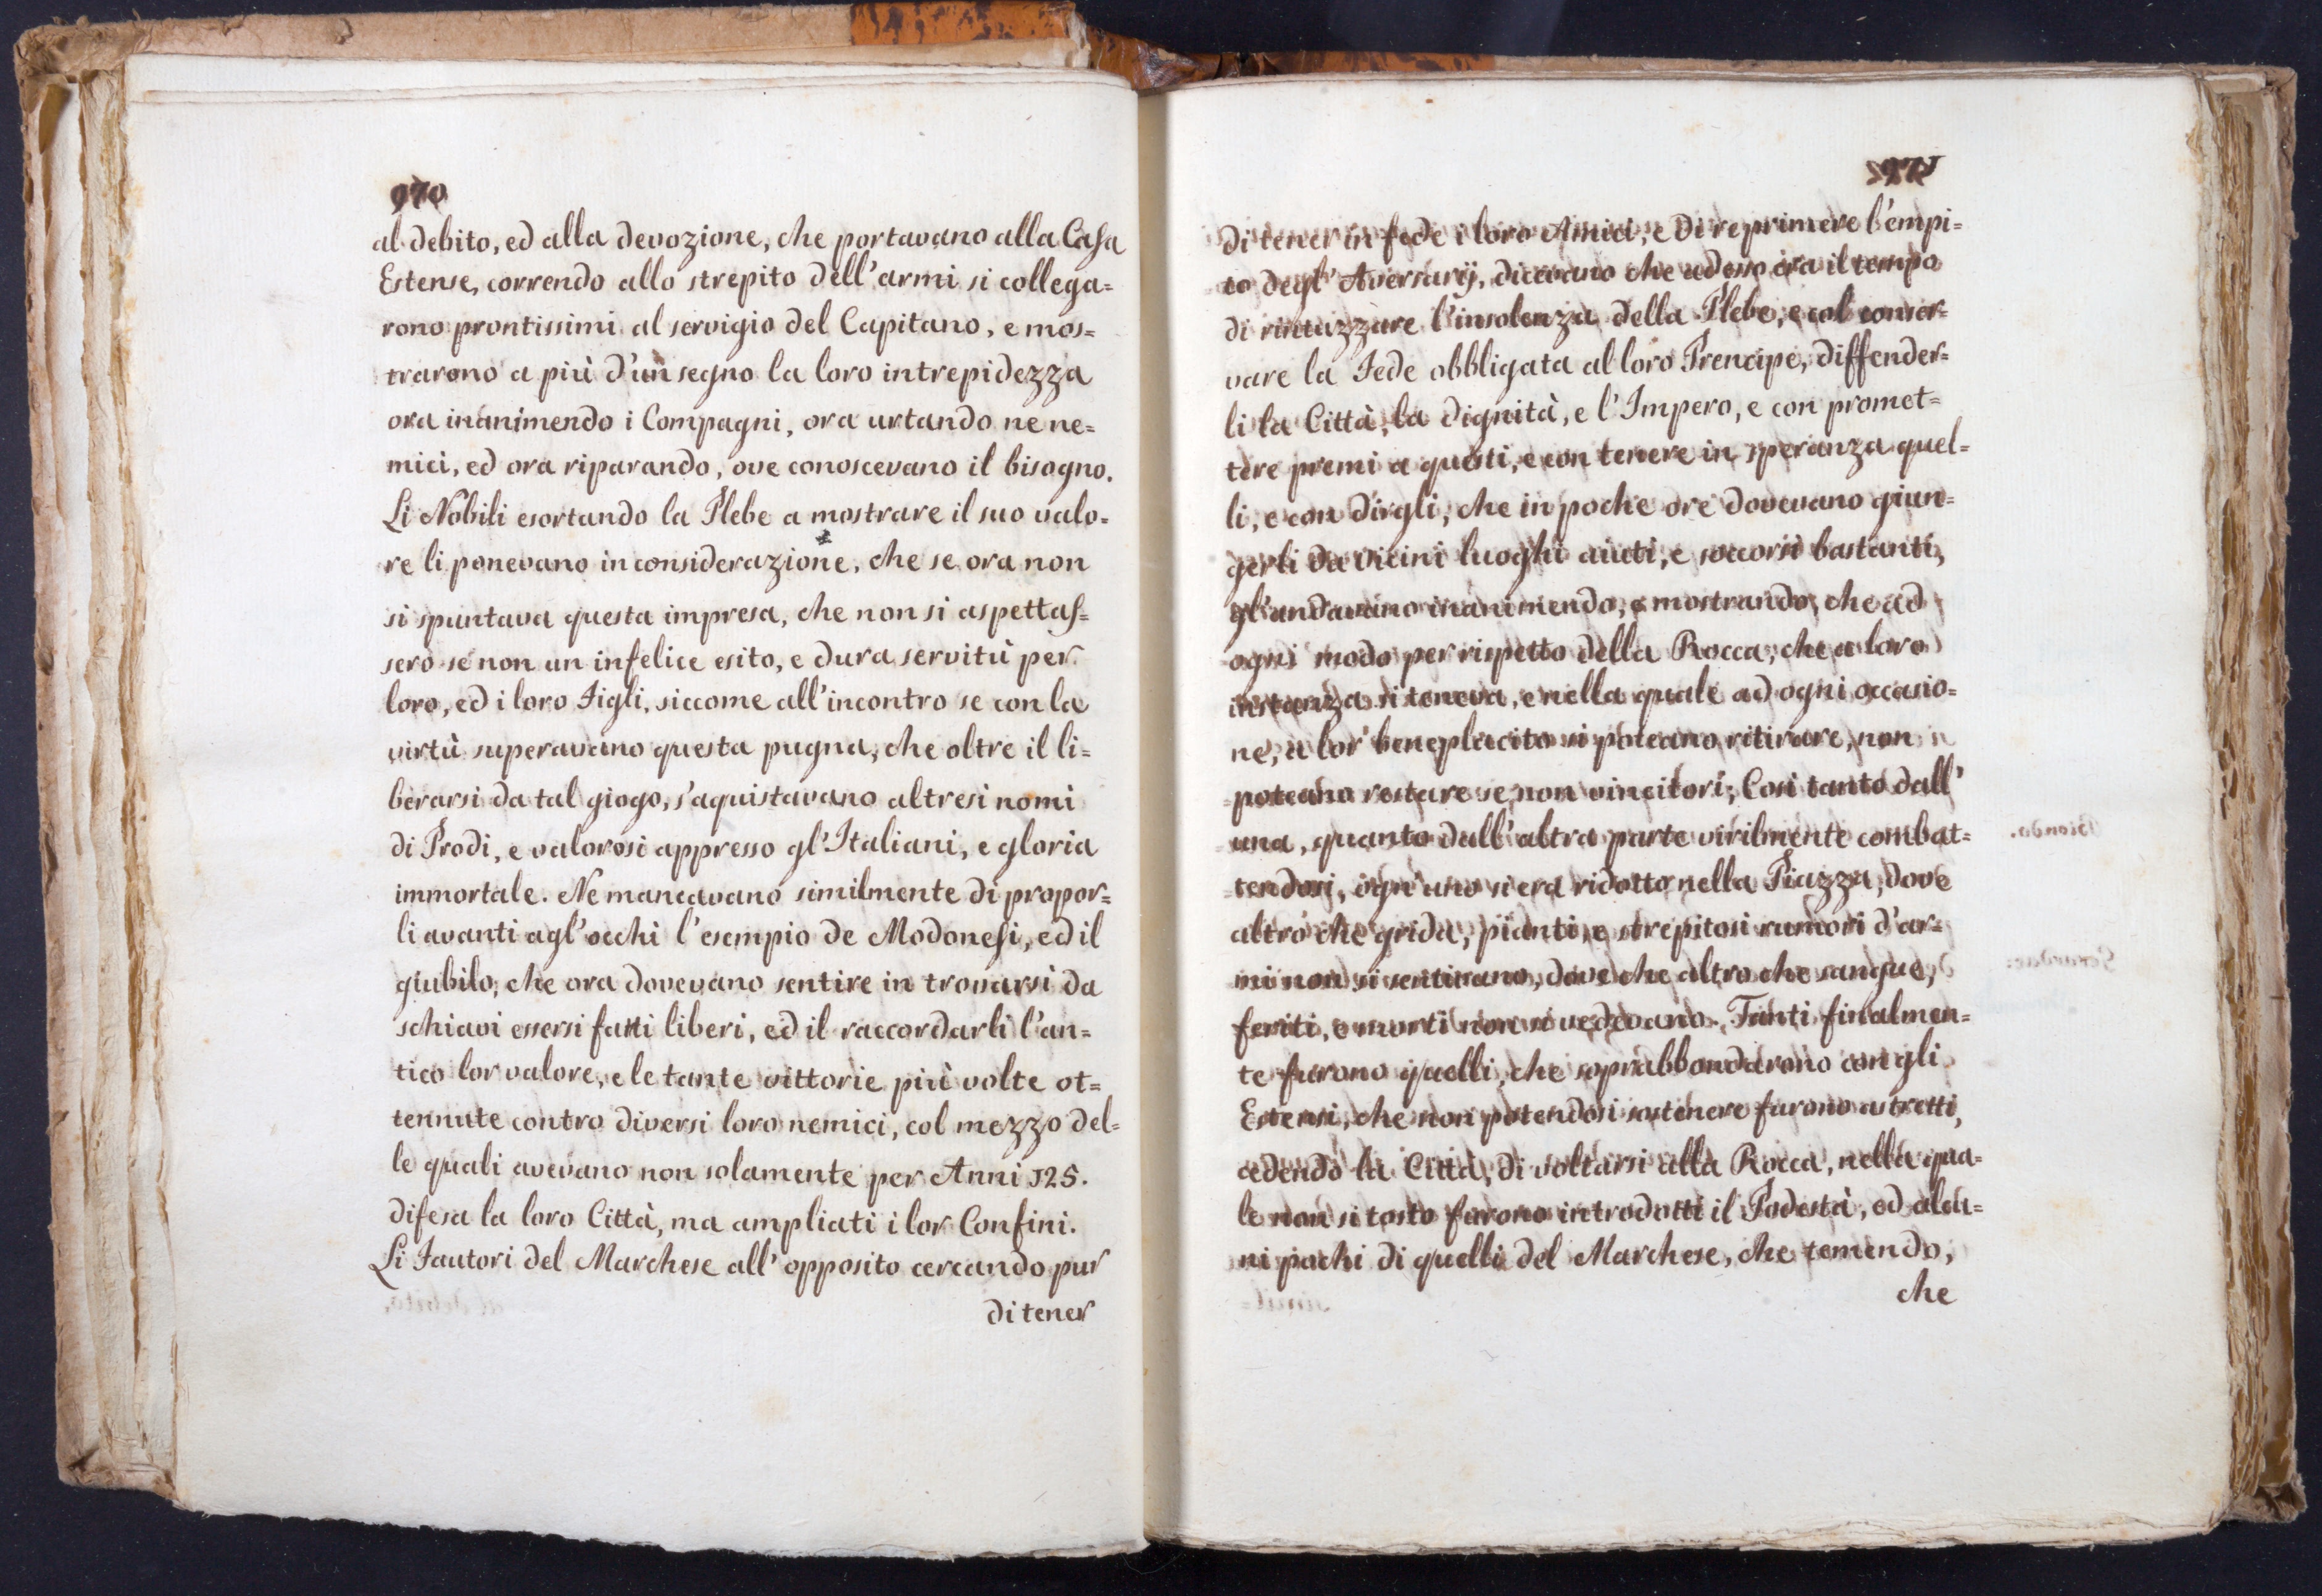 970
al debito, ed alla devozione, che portavano alla Casa
Estense, correndo allo strepito dell'armi si collega=
rono prontissimi al servigio del Capitano, e mos=
trarono a più d'un segno la loro intrepidezza
ora inanimendo i Compagni, ora urtando ne ne=
mici, ed ora riparando, ove conoscevano il bisogno.
Li Nobili esortando la Plebe a mostrare il suo valo=
re li ponevano in considerazione, che se ora non
si spuntava questa impresa, che non si aspettas=
sero se non un infelice esito, e dura servitù per
loro, ed i loro Figli, siccome all'incontro se con la
virtù superavano questa pugna, che oltre il li=
berarsi da tal giogo, s'aquistavano altresi nomi
di Prodi, e valorosi appresso gl'Italiani, e gloria
immortale. Ne mancavano similmente di propor=
li avanti agl'occhi l'esempio de Modonesi, ed il
giubilo, che ora dovevano sentire in trovarsi da
schiavi essersi fatti liberi, ed il raccordarli l'an=
tico lor valore, e le tante vittorie più volte ot=
tennute contro diversi loro nemici, col mezzo del=
le quali avevano non solamente per Anni 125.
difesa la loro Città, ma ampliati i lor Confini.
Li Fautori del Marchese all'opposito cercando pur
di tener
971
di tener in fede i loro Amici, e di reprimere l'empi=
to degl'Aversarij, dicevano che adesso era il tempo
di rintuzzare l'insolenza della Plebe, e col conser=
vare la Fede obbligata al loro Prencipe, diffender=
li la Città, la dignità, e l'Impero, e con promet=
tere premi a questi, e con tenere in speranza quel=
li, e con dirgli, che in poche ore dovevano giun=
gerli da vicini luoghi aiuti, e soccorsi bastanti,
gl'andavano inanimendo, e mostrando, che ad
ogni modo per rispetto della Rocca, che a loro
instanza si teneva, e nella quale ad ogni occasio=
ne, a lor beneplacito si poteano ritirare, non
poteano restare se non vincitori; Cosi tanto dall'
una, quanto dall'altra parte virilmente combat=
tendosi, ogn'uno si era ridotto nella Piazza, dove
altro che grida, pianti, e strepitosi rumori d'ar=
mi non si sentivano, dove che altro che sangue,
feriti, e morti non si vedevano. Tanti finalmen=
te furono quelli, che soprabbondarono con gli
Estensi, che non potendosi sostenere furono astretti,
cedendo la Città, di voltarsi alla Rocca, nella qua=
le non si tosto furono introdotti il Podestà, ed alcu=
ni pochi di quelli del Marchese, che temendo,
che